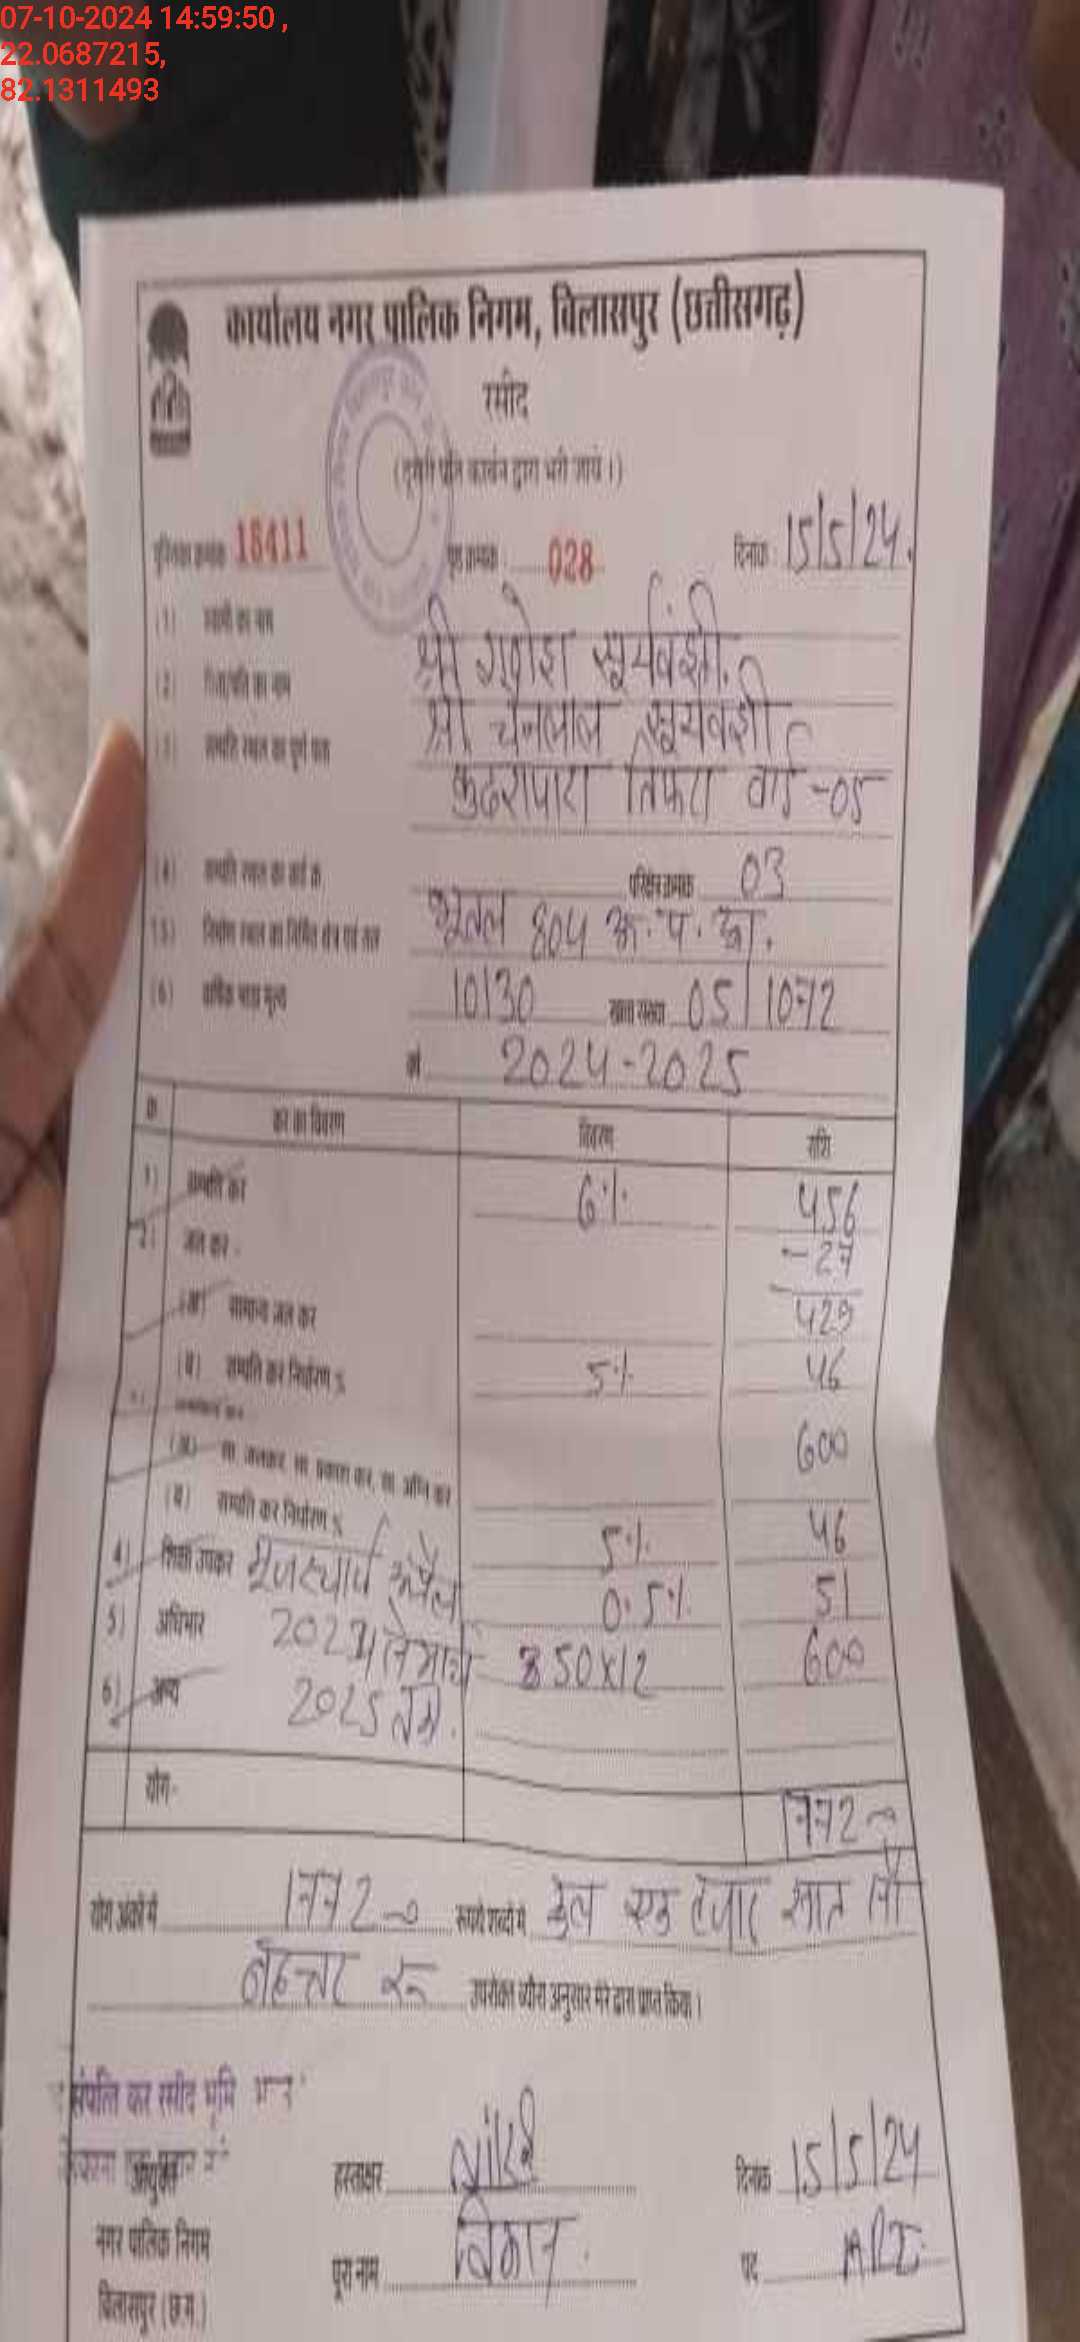 07-10-2024 14:59:50 ,
22.0687215,
82.1311493
कार्यालय नगर पालिक निगम, बिलासपुर (छत्तीसगढ़)
रसीद
(दूसरी प्रति कार्बन द्वारा भरी जायं ।)
पुस्तिका क्रमांक 18411 पृष्ठ क्रमांक 028 दिनांक 15/5/24.
(1) स्वामी का नाम श्री गणेश सूर्यवंशी.
(2) पिता/पति का नाम श्री चैनलाल सूर्यवंशी
(3) सम्पत्ति स्थल का पूर्ण पता कुदरापारा तिफरा वार्ड -05
(4) सम्पत्ति स्थल का वार्ड क्र. परिक्षेत्र क्रमांक 03
(5) निर्माण स्थल का निर्मित क्षेत्र एवं तल भूतल 804
(6) वार्षिक भाड़ा मूल्य 10130 खाता संख्या 05/1072
वर्ष 2024-2025
क्र कर का विवरण विवरण राशि
1) सम्पत्ति कर 6% 456
-27
2) जल कर -
(अ) सामान्य जल कर 429
(ब) सम्पत्ति कर निर्धारण % 5% 46
600
(अ) सा. जलकर, सा. प्रकाश कर, सा. अग्नि कर
(ब) सम्पत्ति कर निर्धारण % 5% 46
4) शिक्षा उपकर 0.5% 51
5) अधिभार 2024 50x12 600
6) अन्य 2025 तक.
योग- 1772
योग अंकों में 1772 रूपये शब्दों में कुल एक हजार सात सौ
बहत्तर रू उपरोक्त ब्यौरा अनुसार मेरे द्वारा प्राप्त किया ।
संपत्ति कर रसीद भूमि
आयुक्त हस्ताक्षर दिनांक 15/5/24
नगर पालिक निगम पूरा नाम पद ARI
बिलासपुर (छ.ग.)